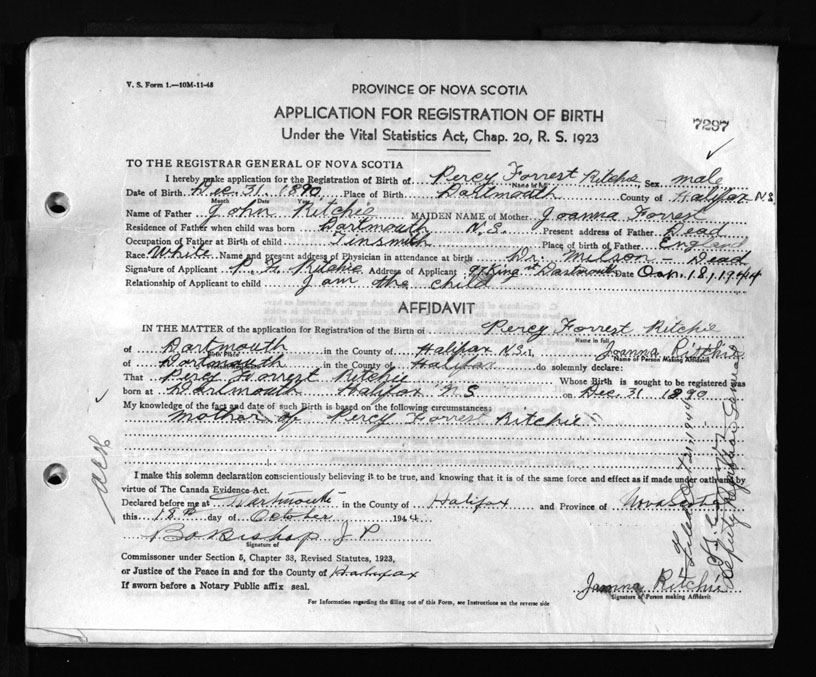 V. S. Form 1.—10M-11-43
PROVINCE OF NOVA SCOTIA
APPLICATION FOR REGISTRATION OF BIRTH
7297
Under the Vital Statistics Act, Chap. 20, R. S. 1923
TO THE REGISTRAR GENERAL OF NOVA SCOTIA
I hereby make application for the Registration of Birth of Percy Forrest Ritchie Sex male
Name in full
Date of Birth Dec. 31. 1890 Place of Birth Dartmouth County of Halifax N.S.
Month Date Year
Name of Father John Ritchie MAIDEN NAME of Mother Joanna Forrest
Residence of Father when child was born Dartmouth N.S. Present address of Father Dead
Occupation of Father at Birth of child Tinsmith Place of birth of Father England
Race White Name and present address of Physician in attendance at birth Dr. Milson - Dead
Signature of Applicant P. F. Ritchie Address of Applicant King St Dartmouth Date Oct. 18, 1944
Relationship of Applicant to child I am the child
AFFIDAVIT
IN THE MATTER of the application for Registration of the Birth of Percy Forrest Ritchie
Name in full
of Dartmouth in the County of Halifax N.S. I, Joanna Ritchie
Birth Place
Name of Person Making Affidavit
of Dartmouth in the County of Halifax do solemnly declare:
That Percy Forrest Ritchie Whose Birth is sought to be registered was
born at Dartmouth Halifax N.S on Dec. 31 1890
My knowledge of the fact and date of such Birth is based on the following circumstances:
Mother of Percy Forrest Ritchie
I make this solemn declaration conscientiously believing it to be true, and knowing that it is of the same force and effect as if made under oath and by
virtue of The Canada Evidence Act.
Declared before me at Dartmouth in the County of Halifax and Province of Nova Scotia
this 18th day of October 1944
Bishop J P
Signature of
Commissoner under Section 5, Chapter 38, Revised Statutes, 1923,
or Justice of the Peace in and for the County of Halifax
If sworn before a Notary Public affix seal.
Joanna Ritchie
Signature of Person making Affidavit
For Information regarding the filling out of this Form, see Instructions on the reverse side
Filed Oct 1944
Deputy Registrar General